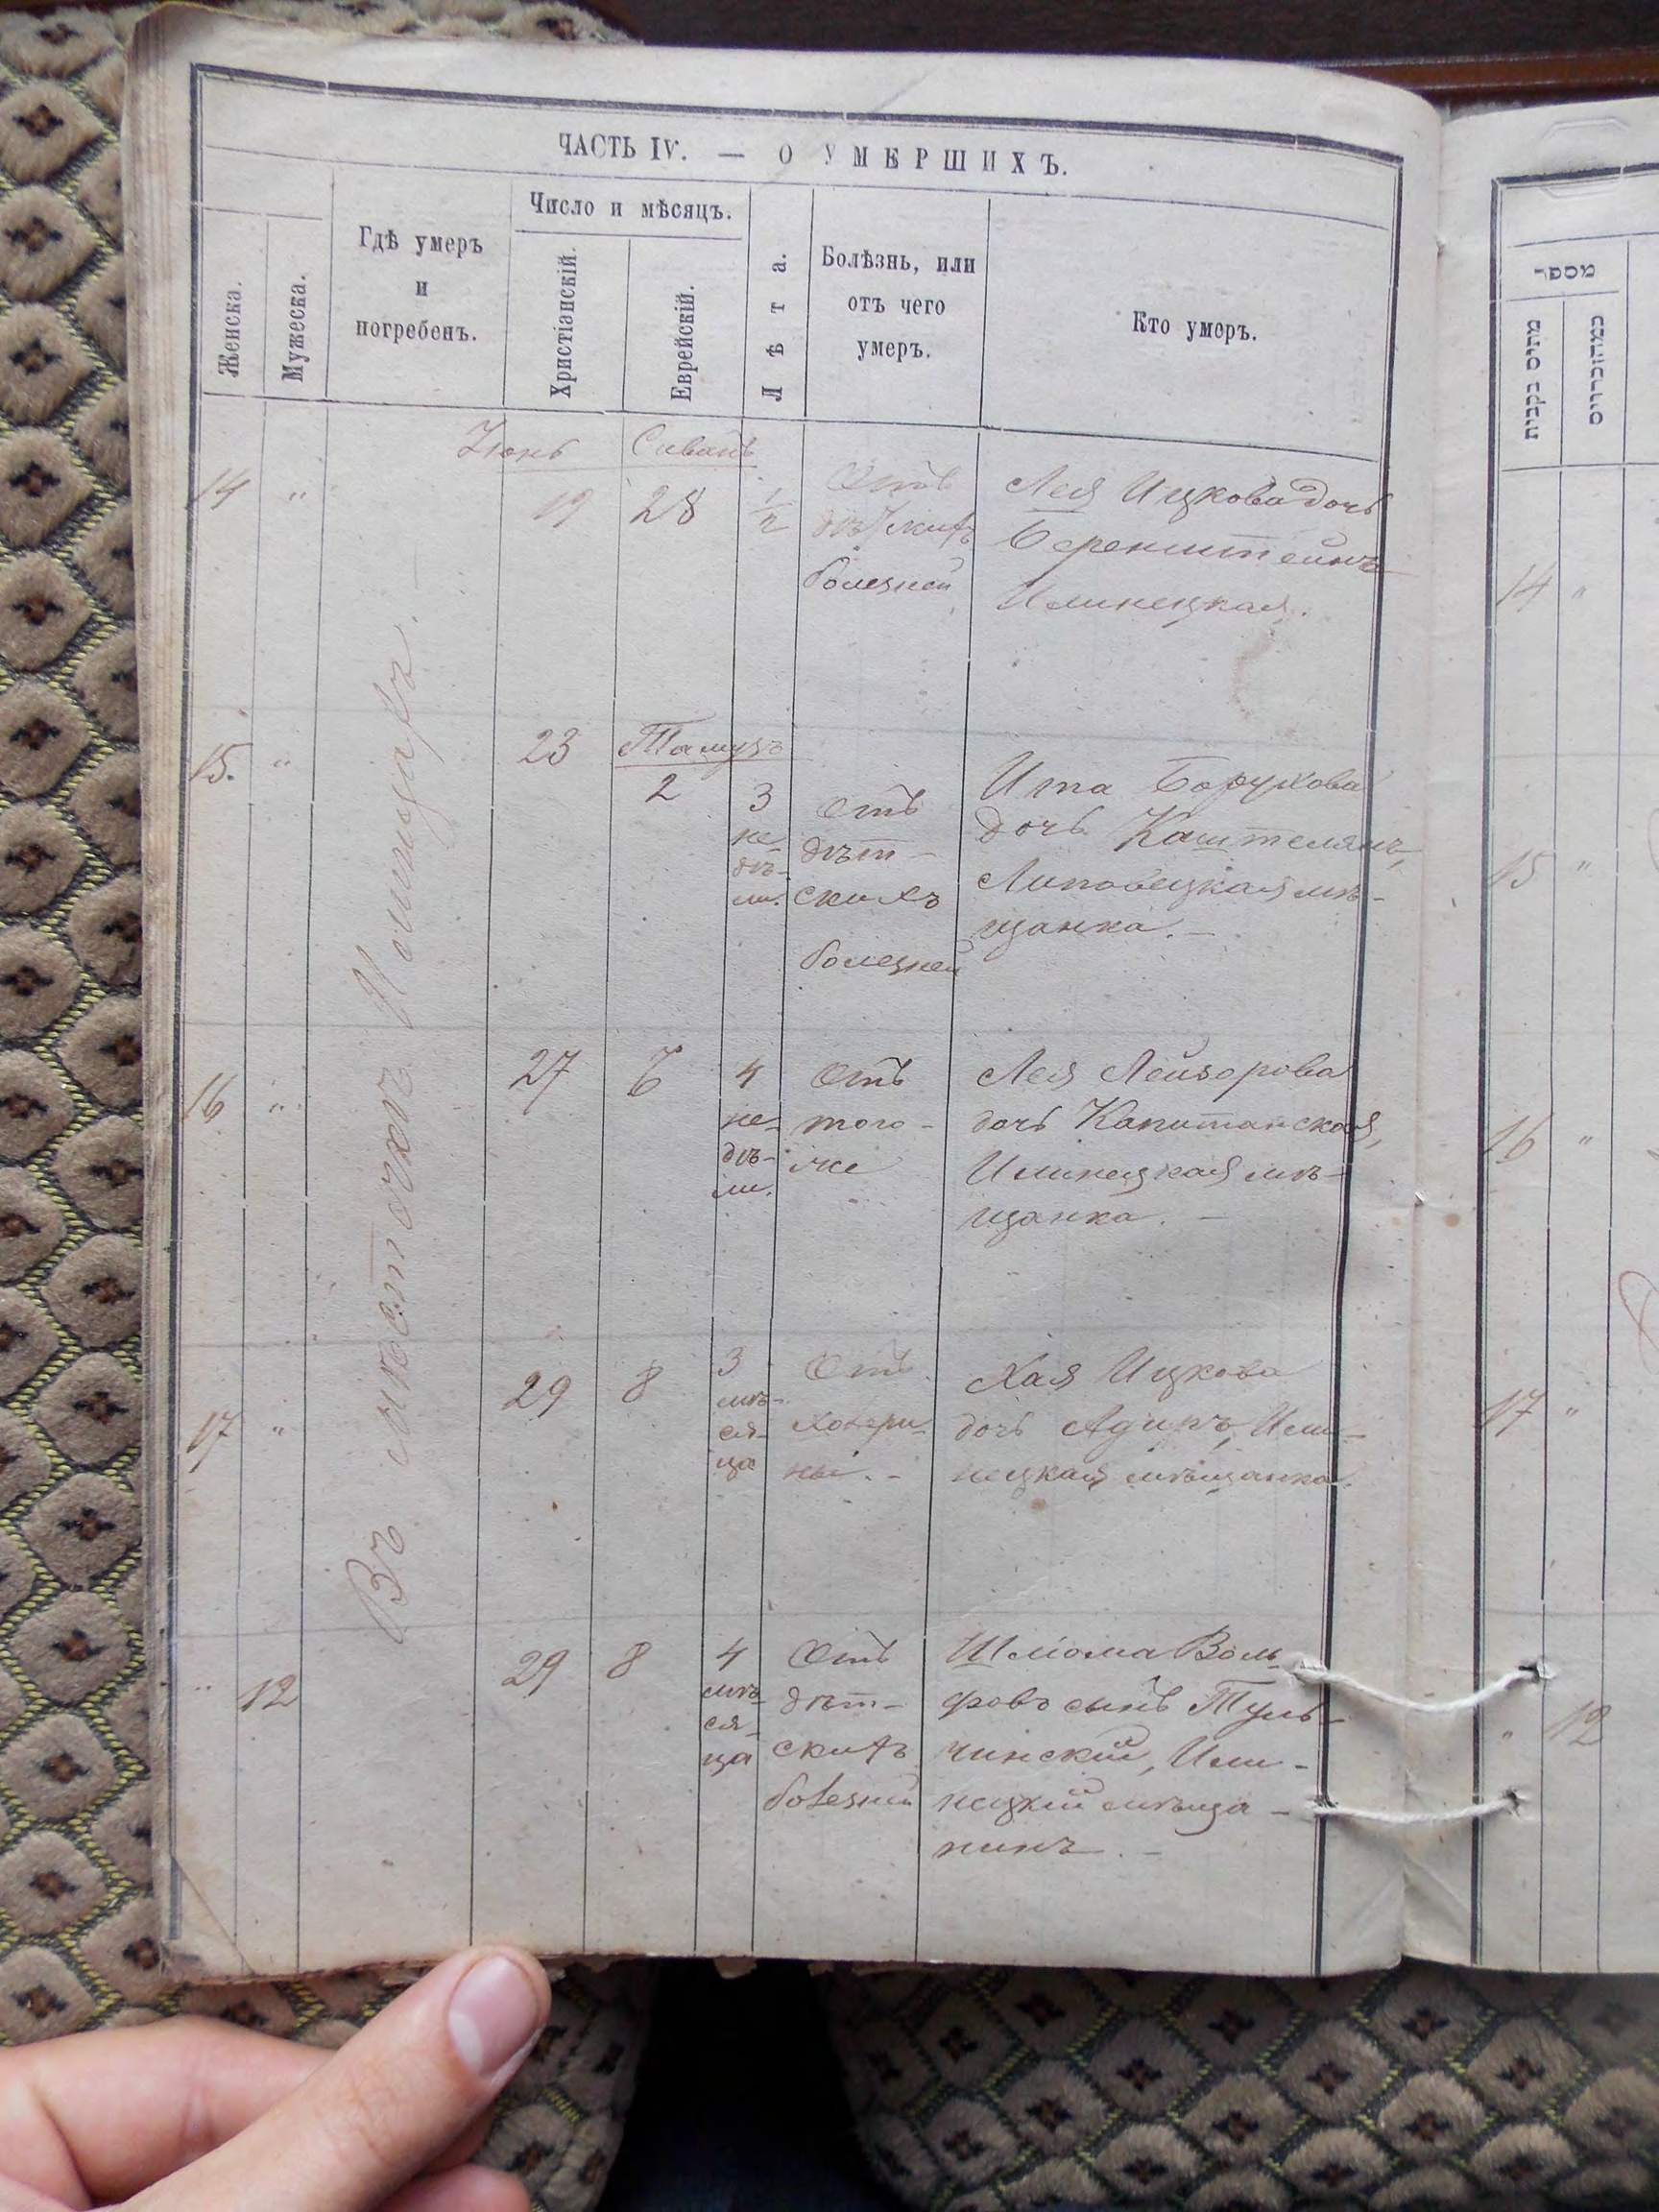 ЧАСТЬ IV. — О УМЕРШИХЪ.
Женска.
Мужеска.
Гдѣ умеръ
и
погребенъ.
Число и мѣсяцъ.
Христіанскій.
Еврейскій.
Лѣта.
Болѣзнь, или
отъ чего
умеръ.
Кто умеръ.
Въ мѣстечкѣ
Іюнь Сиванъ
14 " 19 28 1/2
Отъ
дѣтскихъ
болезней
Лея Ицкова дочь
Беренштейнъ
Илинецкая.
15. " 23 Тамузъ
2
3
не-
дѣ-
ли.
Отъ
дѣт-
скихъ
болезней
Ита Борухова
дочь Каштелянъ,
Липовецкая мѣ-
щанка. -
16 " 27 6
4
не-
дѣ-
ли.
Отъ
того-
же
Лея Лейзорова
дочь Капитанская,
Илинецкая мѣ-
щанка. -
17 " 29 8
3
мѣ-
ся-
ца
Отъ
Хая Ицкова
дочь Адиръ, Или-
нецкая мѣщанка.
" 12 29 8
4
мѣ-
ся-
ца
Отъ
дѣт-
скихъ
болезней
Шлёма Воль-
фовъ сынъ Туль-
чинскій, Или-
нецкій мѣща-
нинъ. -
מספר
מהנקבות
מהזכרים
14 "
15 "
16 "
17 "
" 12